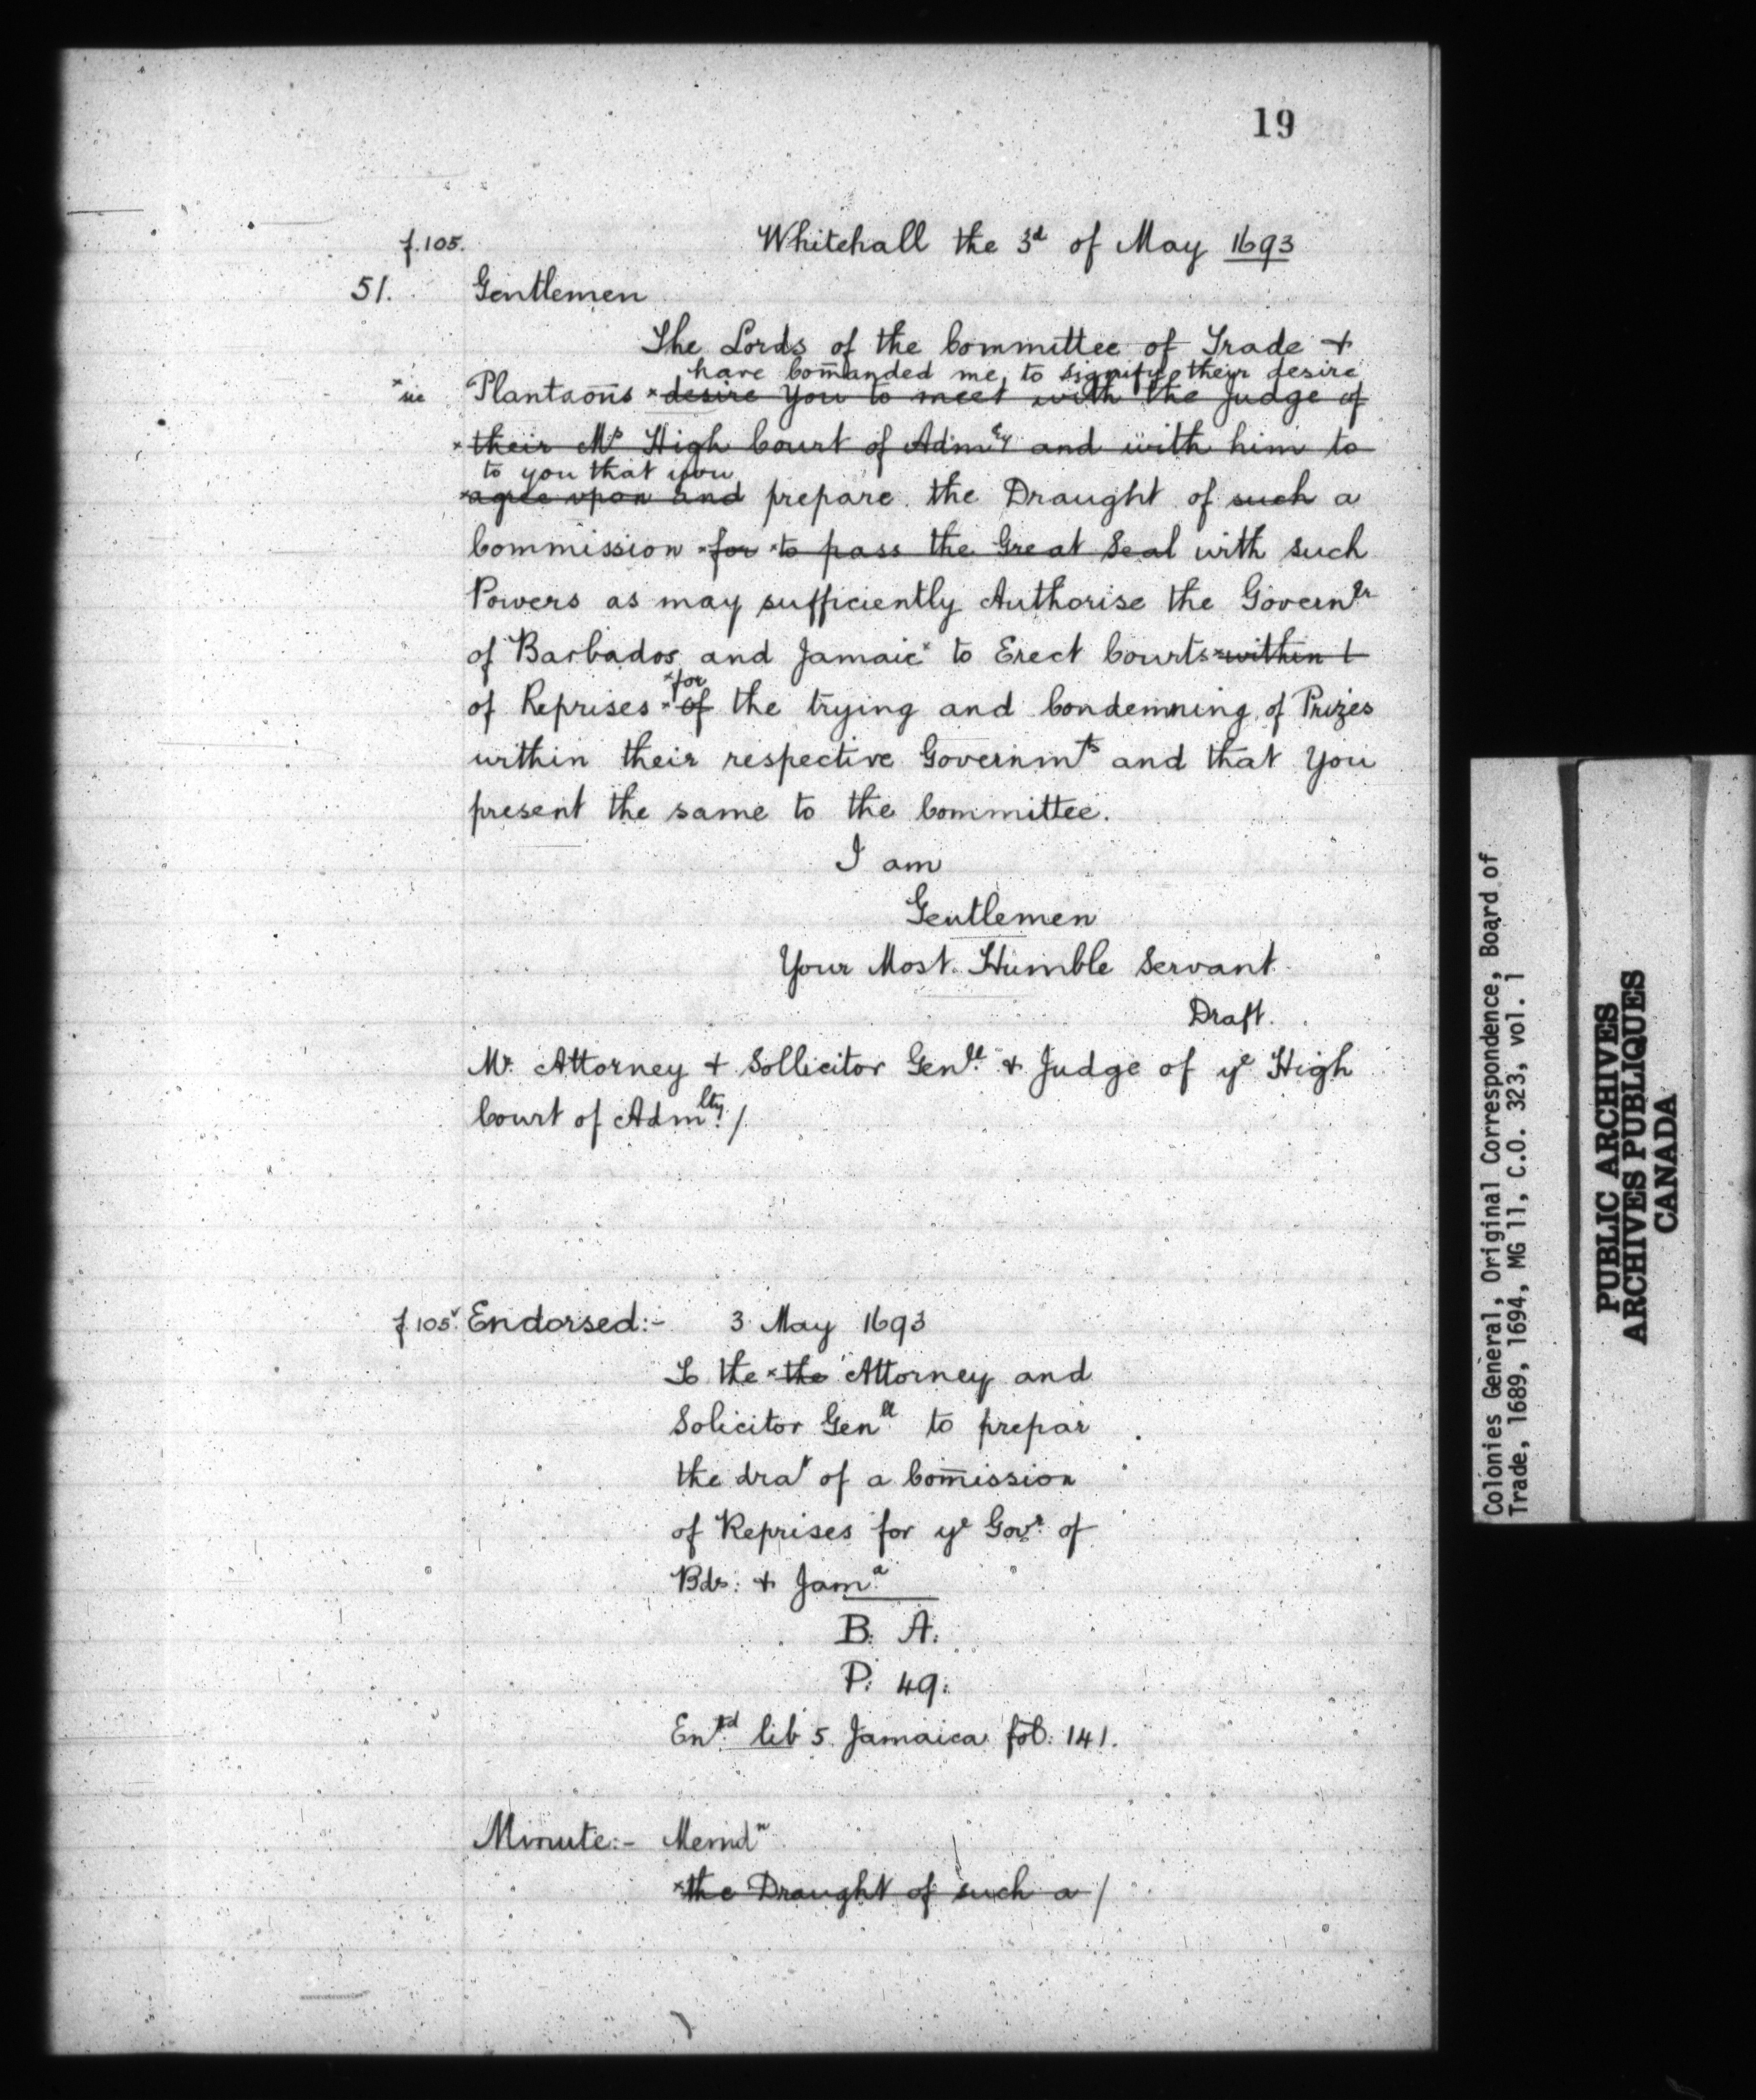 19
f.105. Whitehall the 3d of May 1693
51. Gentlemen
The Lords of the Committee of Trade +
have Com̄anded me to signify their desire
x sic Plantaōns x desire You to meet with the Judge of
x their Ms High Court of Admty and with him to
to you that you
x agree upon and prepare the Draught of such a
Commission x for x to pass the Great Seal with such
Powers as may sufficiently Authorise the Governrs
of Barbados and Jamaica to Erect Courts x within t
x for
of Reprises x of the trying and Condemning of Prizes
within their respective Governmts and that You
present the same to the Committee.
I am
Gentlemen
Your Most Humble Servant
Draft.
Mr Attorney + Sollicitor Genll + Judge of ye High
Court of Admlty /
f.105v Endorsed:- 3 May 1693
To the x the Attorney and
Solicitor Genll to prepar
the drat of a Com̄ission
of Reprises for ye Govr of
Bds: + Jama
B: A:
P: 49:
Entd lib 5 Jamaica fol: 141.
Minute:- Memdm
x the Draught of such a /
Colonies General, Original Correspondence, Board of
Trade, 1689, 1694, MG 11, C.O. 323, vol. 1
PUBLIC ARCHIVES
ARCHIVES PUBLIQUES
CANADA